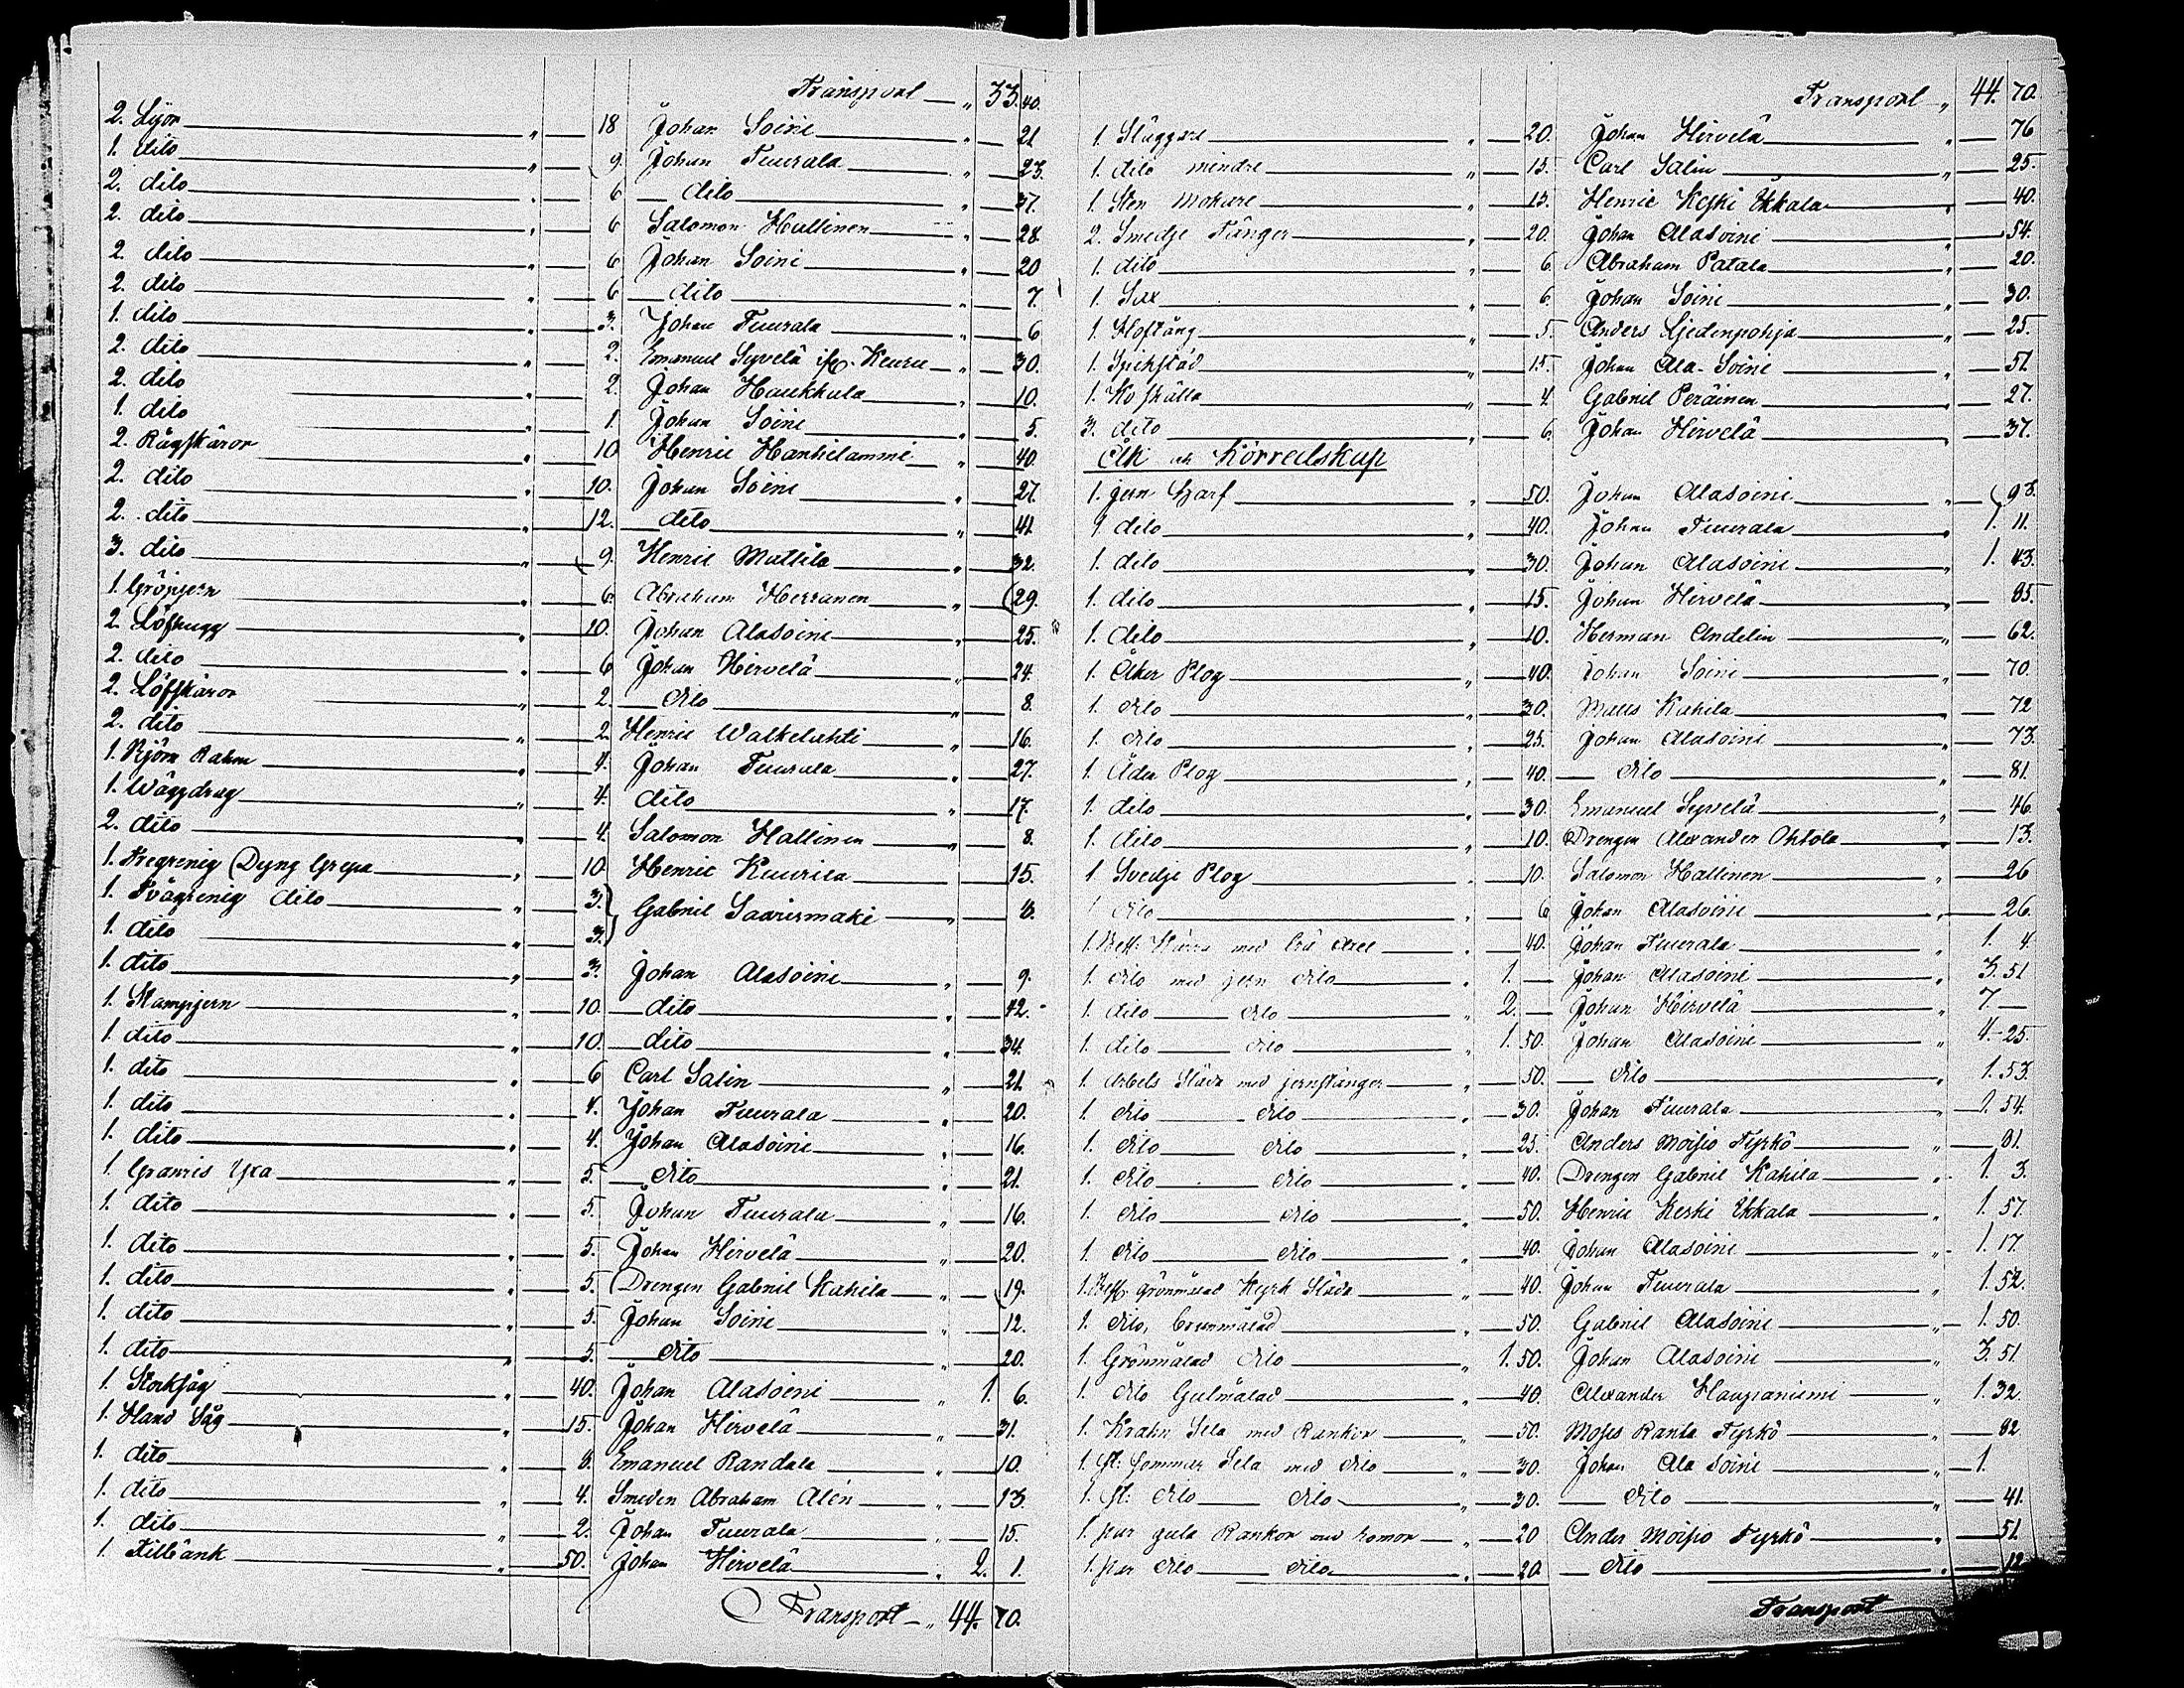 Transport " 33. 40.
2. Lijor " 18 Johan Soini " 21
1. dito " 9. Johan Tuurala " 23.
2. dito " 6 dito " 37.
2. dito " 6 Salomon Hallinen " 28
2. dito " 6 Johan Soini " 20
2. dito " 6 dito " 7.
1. dito " 3. Johan Tuurala " 6
2. dito " 2. Emanuel Syvelä Keuru " 30.
2. dito 2. Johan Haukkala " 10.
1. dito 1. Johan Soini " 5.
2. Rågskäror " 10 Henric Hankilammi " 40.
2. dito " 10. Johan Soini " 27.
2. dito " 12. dito " 41
3. dito " 9. Henric Mattila " 32.
1. Gröpjern " 6. Abraham Herranen " 29.
2. Löfhugg " 10. Johan Alasoini " 25.
2. dito " 6 Johan Hirvelä " 24.
2. Löfskäror " 2. dito " 8.
2. dito " 2 Henric Walkelahti " 16.
1. " 4. Johan Tuurala " 27.
1. Wäggdrag " 4. dito " 17.
2. dito " 4. Salomon Hallinen " 8.
1. Tregrenig Dyng Grepa " 10. Henric Kuurila 15.
1. Tvågrenig dito " 3. Gabriel Saarismaki "
1. dito " 3.
1. dito " 3. Johan Alasoini " 9.
1. Stampjern " 10. dito " 42.
1. dito " 10. dito " 34.
1. dito " 6 Carl Salin " 21
1. dito " 4. Johan Tuurala " 20.
1. dito " 4. Johan Alasoini " 16.
1. Granris Yxa " 5. dito " 21.
1. dito " 5. Johan Tuurala " 16.
1. dito " 5. Johan Hirvelä " 20.
1. dito " 5. Drengen Gabriel Kahila " 19.
1. dito " 5. Johan Soini " 12.
1. dito " 5. dito " 20.
1. Stocksåg " 40. Johan Alasoini " 1. 6.
1. Hand Såg " 15. Johan Hirvelä " 31.
1. dito " 8. Emanuel Randala " 10.
1. dito " 4. Smeden Abraham Alén " 13.
1. dito " 2. Johan Tuurala " 15.
1. Filbänk " 50. Johan Hirvelä " 2. 1.
Transport " 44. 70.
Transport " 44. 70.
1. Släggae " 20. Johan Hirvelä " 76
1. dito mindre " 15. Carl Salin " 25.
1. Sten Mokare " 15. Henric Keski Ykkala " 40.
2. Smedje Tänger " 20. Johan Alasoini " 54.
1. dito " 6. Abraham Patala " 20.
1. Sax " 6. Johan Soini " 30.
1. Hoftång " 5. Anders Ljedenpohja " 25.
1. Spikstäd " 15. Johan Ala-Soini " 51
1. Ko skälla " 4 Gabriel Peräinen " 27.
3. dito " 6. Johan Hirvelä " 37.
Åk och Körredskap
1. jern Harf " 50. Johan Alasoini " 93.
1 dito " 40. Johan Tuurala " 1. 11.
1. dito " 30. Johan Alasoini " 1. 43.
1. dito " 15. Johan Hirvelä " 85.
1. dito " 10. Herman Andelin " 62.
1. Åker Plog " 40. Johan Soini " 70.
1. dito " 30. Matts Kahila " 72
1. dito " 25. Johan Alasoini " 73.
1. Åder Plog " 40. dito " 81.
1. dito " 30. Emanuel Syvelä " 46
1. dito " 10. Drengen Alexander Ohtola " 13.
1 Svedje Plog " 10. Salomon Hallinen " 26
1 dito " 6 Johan Alasoini " 26.
1. Besl: Kärra med trä Axel " 40. Johan Tuurala " 1. 4.
1. dito med jern dito " 1. — Johan Alasoini " 3. 51
1. dito dito " 2. — Johan Hirvelä " 7. —
1. dito dito " 1. 50. Johan Alasoini " 4. 25.
1. Arbets Släda med jernstänger " 50. dito " 1. 53.
1. dito dito " 30. Johan Tuurala " 1. 54.
1. dito dito " 25. Anders Moisio Tyrkö " 81.
1. dito dito " 40. Drengen Gabriel Kahila " 1 3.
1. dito dito " 50. Henric Keski Ykkala " 1. 57.
1. dito dito " 40. Johan Alasoini " 1. 17.
1. Besl: Grönmålad Kyrk Släda " 40. Johan Tuurala " 1. 52.
1. dito, brunmålad " 50. Gabriel Alasoini " 1. 50.
1. Grönmålad dito " 1. 50. Johan Alasoini " 3. 51.
1. dito Gulmålad " 40. Alexander Haupaniemi " 1. 32.
1. Krahn Sela med Rankor " 50. Moses Ranta Tyrkö " 82
1. st: sommar Sela med dito " 30. Johan Ala Soini " 1.
1. st: dito dito " 30. dito " 41.
1. par gula Rankor med bomor " 20 Ander Moisio Tyrkö " 51.
1. par dito dito " 20 dito " 12
Transport